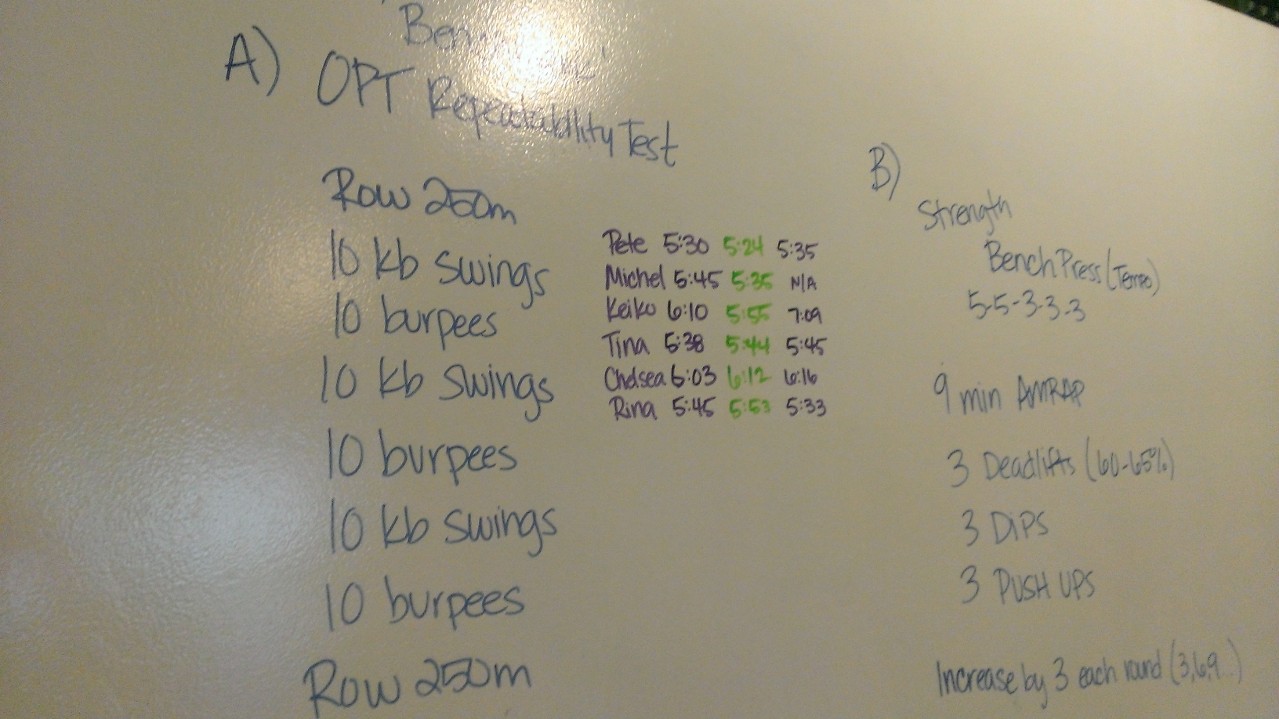 A) OPT Repeatability Test
Row 250m
10 kb swings
10 burpees
10 kb swings
10 burpees
10 kb swings
10 burpees
Row 250m
Pete 5:30 5:24 5:35
Michel 5:45 5:35 N/A
Keiko 6:10 5:55 7:09
Tina 5:38 5:44 5:45
Chelsea 6:03 6:12 6:16
Rina 5:45 5:53 5:33
B)
Strength
Bench Press (Tempo)
5-5-3-3-3
9 min AMRAP
3 Deadlifts (60-65%)
3 DiPS
3 PUSH UPS
Increase by 3 each round (3,6,9...)